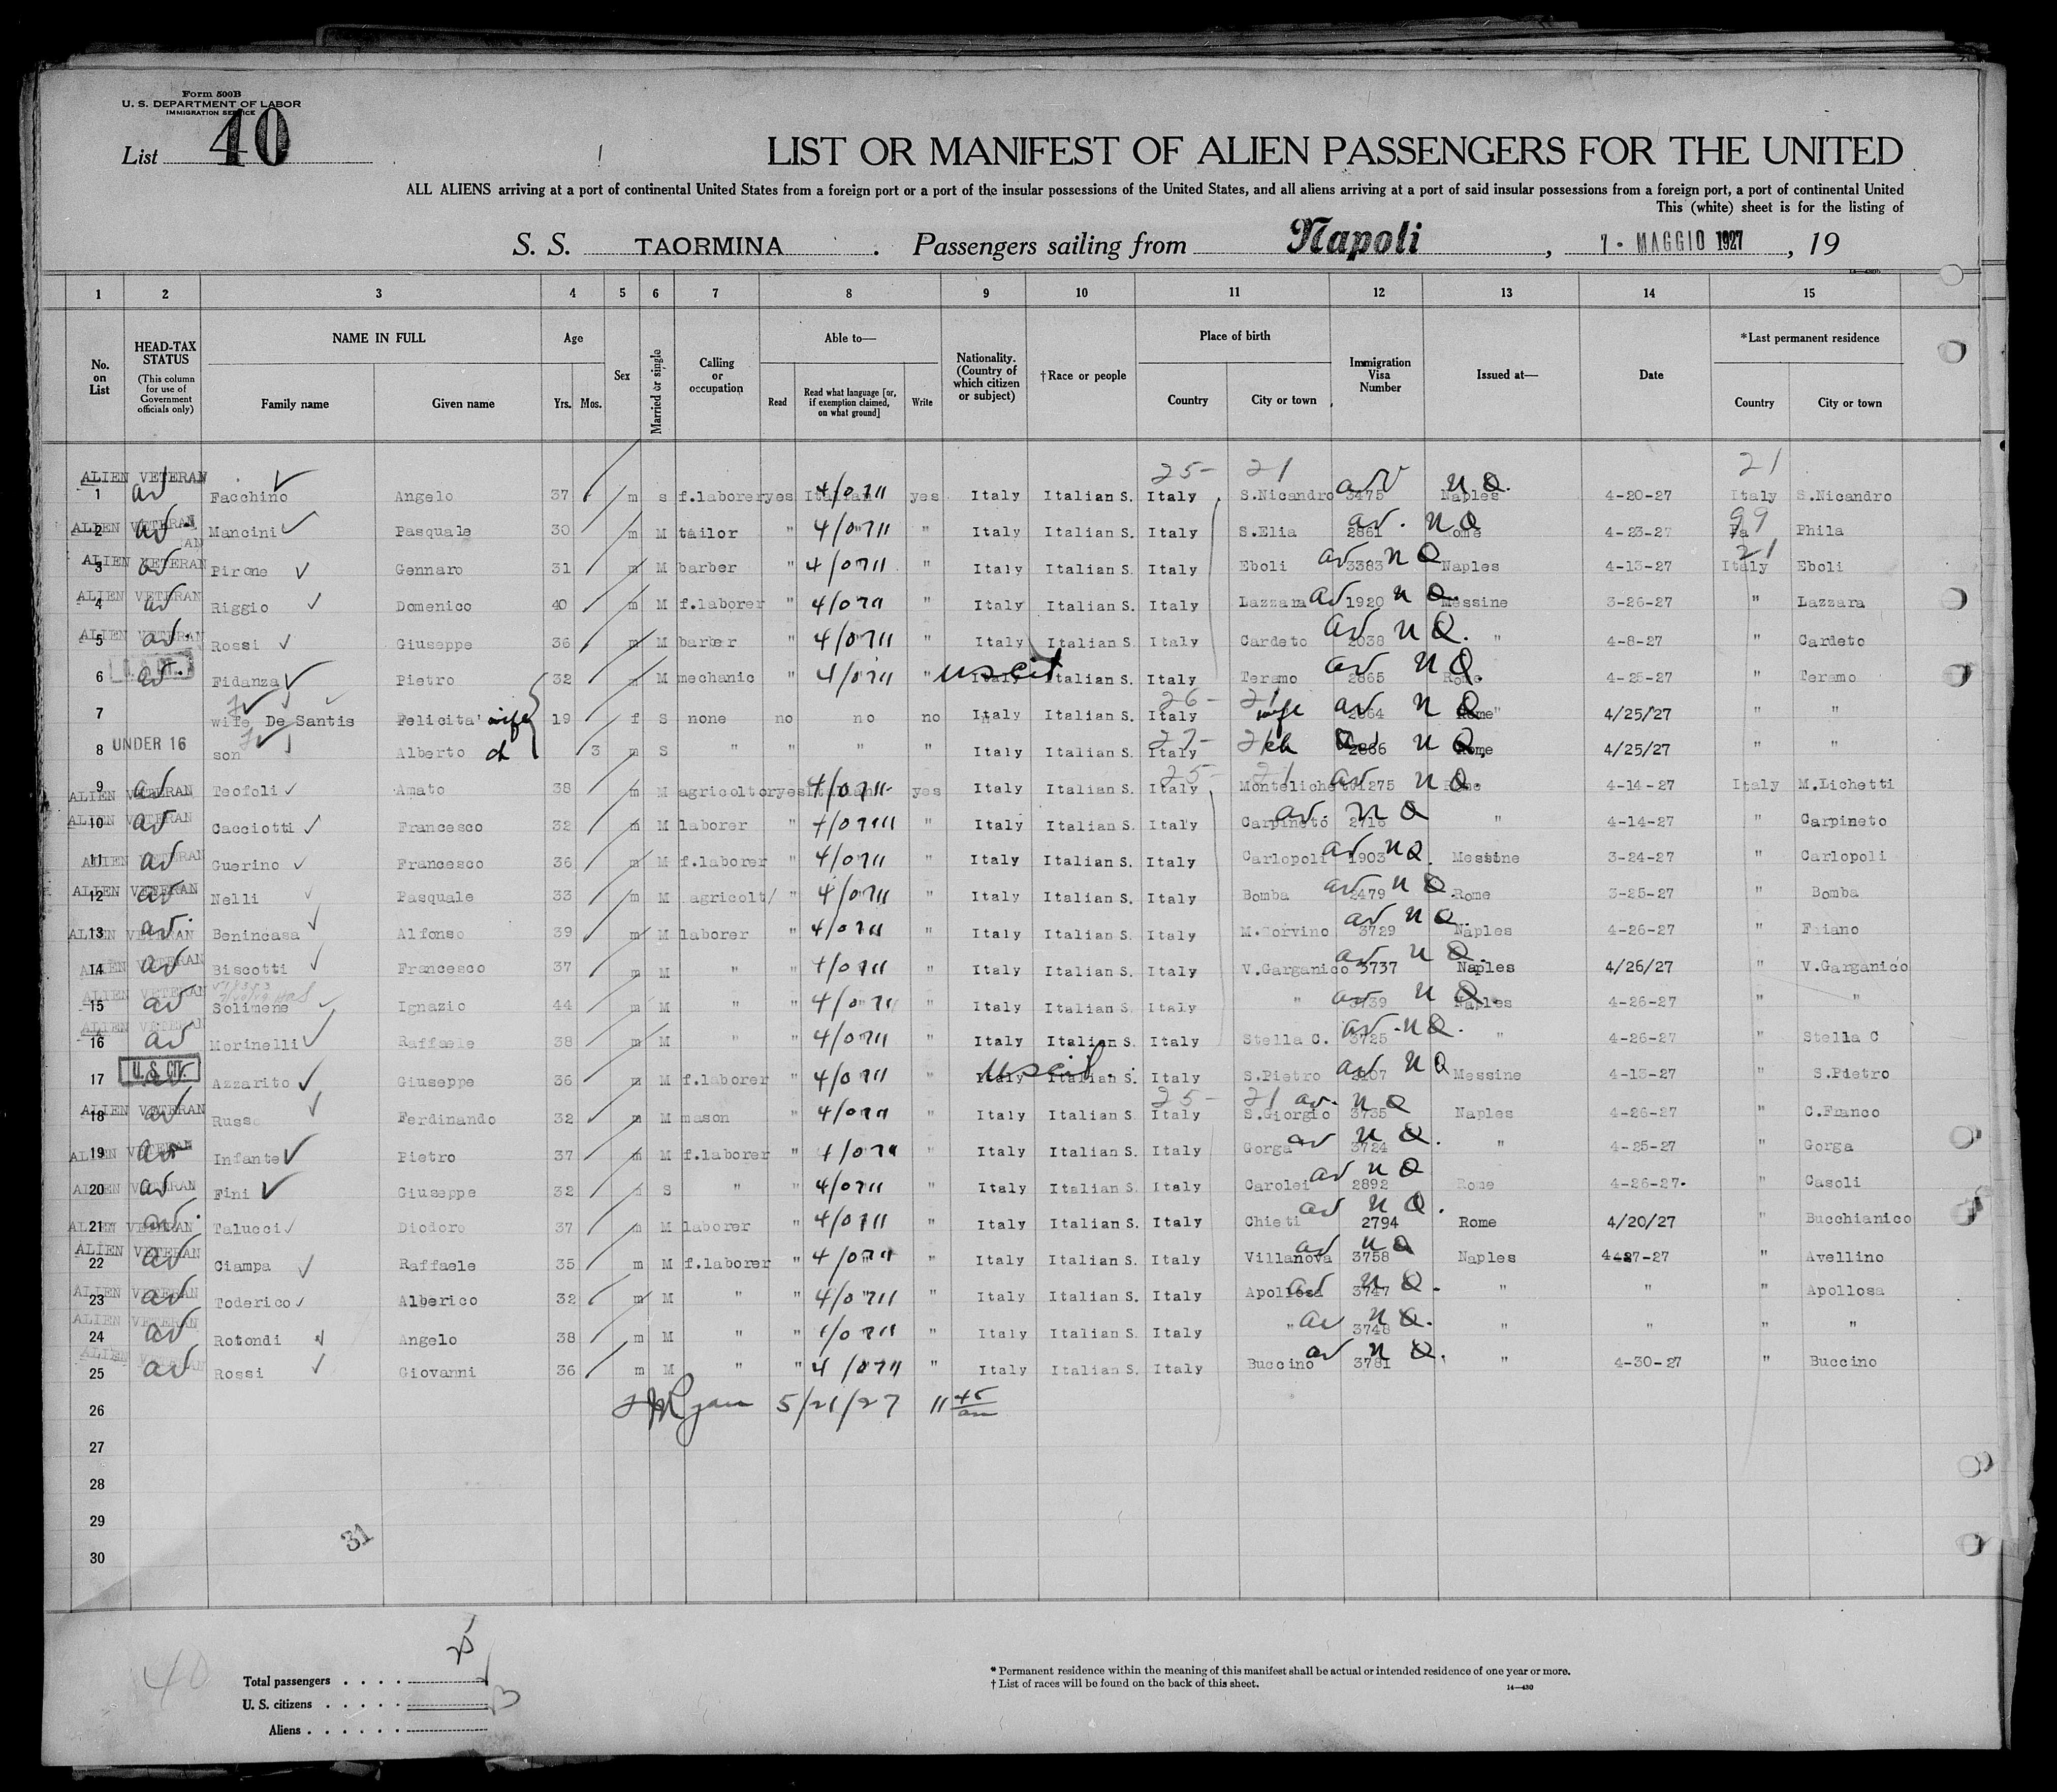 Form 500B
U. S. DEPARTMENT OF LABOR
IMMIGRATION SERVICE
List 40
LIST OR MANIFEST OF ALIEN PASSENGERS FOR THE UNITED
ALL ALIENS arriving at a port of continental United States from a foreign port or a port of the insular possessions of the United States, and all aliens arriving at a port of said insular possessions from a foreign port, a port of continental United
This (white) sheet is for the listing of
S. S. TAORMINA . Passengers sailing from Napoli , 7 - MAGGIO 1927 , 19
1 2 3 4 5 6 7 8 9 10 11 12 13 14 15
No. on List HEAD-TAX STATUS (This column for use of Government officials only) NAME IN FULL Family name Given name Age Yrs. Mos. Sex Married or single Calling or occupation Able to— Read Read what language [or, if exemption claimed, on what ground] Write Nationality. (Country of which citizen or subject) †Race or people Place of birth Country City or town Immigration Visa Number Issued at— Date *Last permanent residence Country City or town
25- 21 21
ALIEN VETERAN 1 av Facchino Angelo 37 m s f.laborer yes Italian 4/0711 yes Italy Italian S. Italy S.Nicandro 3475 av NQ Naples 4-20-27 Italy S.Nicandro
ALIEN VETERAN 2 av Mancini Pasquale 30 m M tailor " 4/0711 " Italy Italian S. Italy S.Elia 2861 av. NQ Rome 4-23-27 Pa 99 Phila
ALIEN VETERAN 3 av Pirone Gennaro 31 m M barber " 4/0711 " Italy Italian S. Italy Eboli 3383 av NQ Naples 4-13-27 Italy 21 Eboli
ALIEN VETERAN 4 av Riggio Domenico 40 m M f.laborer " 4/0711 " Italy Italian S. Italy Lazzara 1920 av NQ. Messine 3-26-27 " Lazzara
ALIEN VETERAN 5 av. Rossi Giuseppe 36 m M barber " 4/0711 " Italy Italian S. Italy Cardeto 2038 av NQ. " 4-8-27 " Cardeto
6 av. Fidanza Pietro 32 m M mechanic " 4/0711 " Italy us cit Italian S. Italy Teramo 2865 av NQ. Rome 4-25-27 " Teramo
7 wife De Santis Felicita' wife 19 f S none no no no Italy Italian S. 26- Italy 21 wife 2864 av NQ Rome 4/25/27 " "
8 UNDER 16 son Alberto ch 3 m S " " " " Italy Italian S. 27- Italy 21 ch 2866 NQ Rome 4/25/27 " "
ALIEN VETERAN 9 av Teofoli Amato 38 m M agricoltor yes Italian 4/0711 yes Italy Italian S. 25- Italy 21 1275 av NQ. Rome 4-14-27 Italy M.Lichetti
ALIEN VETERAN 10 av Cacciotti Francesco 32 m M laborer " " Italy Italian S. Italy Carpineto 2715 av. NQ " 4-14-27 " Carpineto
ALIEN VETERAN 11 av Guerino Francesco 36 m M f.laborer " 4/0711 " Italy Italian S. Italy Carlopoli 1903 av NQ. Messine 3-24-27 " Carlopoli
ALIEN VETERAN 12 av Nelli Pasquale 33 m M agricolt/ " 4/0711 " Italy Italian S. Italy Bomba 2479 av NQ. Rome 3-25-27 " Bomba
ALIEN VETERAN 13 av. Benincasa Alfonso 39 m M laborer " 4/0711 " Italy Italian S. Italy M.Corvino 3729 av NQ. Naples 4-26-27 " Faiano
ALIEN VETERAN 14 av Biscotti Francesco 37 m M " " 4/0711 " Italy Italian S. Italy V.Garganico 3737 av NQ. Naples 4/26/27 " V.Garganico
ALIEN VETERAN 15 av Solimene Ignazio 44 m M " " 4/0711 " Italy Italian S. Italy " 3739 av NQ. Naples 4-26-27 " "
ALIEN VETERAN 16 av Morinelli Raffaele 38 m M " " 4/0711 " Italy Italian S. Italy Stella C. 3725 av. NQ. " 4-26-27 " Stella C
17 U. S. CIT. av Azzarito Giuseppe 36 m M f.laborer " 4/0711 " Italy us cit. Italian S. Italy S.Pietro av NQ Messine 4-13-27 " S.Pietro
ALIEN VETERAN 18 av Russo Ferdinando 32 m M mason " 4/0711 " Italy Italian S. 25- Italy 21 S.Giorgio 3735 av. NQ Naples 4-26-27 " C.Franco
ALIEN VETERAN 19 av Infante Pietro 37 m M f.laborer " 4/0711 " Italy Italian S. Italy Gorga 3724 av NQ. " 4-25-27 " Gorga
ALIEN VETERAN 20 av Fini Giuseppe 32 S " " 4/0711 " Italy Italian S. Italy Carolei 2892 av NQ Rome 4-26-27. " Casoli
ALIEN VETERAN 21 av. Talucci Diodoro 37 m M laborer " 4/0711 " Italy Italian S. Italy Chieti 2794 av NQ. Rome 4/20/27 " Bucchianico
ALIEN VETERAN 22 av Ciampa Raffaele 35 m M f.laborer " 4/0711 " Italy Italian S. Italy Villanova 3758 av NQ Naples 4-27-27 " Avellino
ALIEN VETERAN 23 av Toderico Alberico 32 m M " " 4/0711 " Italy Italian S. Italy Apollosa 3747 av NQ. " " " Apollosa
ALIEN VETERAN 24 av Rotondi Angelo 38 m M " " " Italy Italian S. Italy " 3748 av NQ. " " " "
ALIEN VETERAN 25 av Rossi Giovanni 36 m M " " 4/0711 " Italy Italian S. Italy Buccino 3781 av NQ. " 4-30-27 " Buccino
26 Ryan 5/21/27 11 45 am
27
28
29
31
30
40 25
Total passengers
U. S. citizens
Aliens
* Permanent residence within the meaning of this manifest shall be actual or intended residence of one year or more.
† List of races will be found on the back of this sheet.
14—430